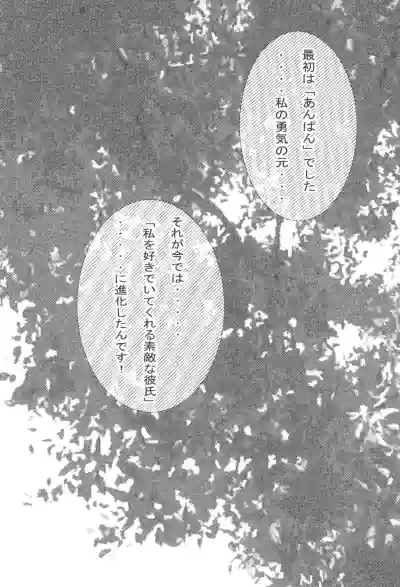 最初は「あんぱん」でした
・・・・私の勇気の元・・・
それが今では・・・・・
「私を好きでいてくれる素敵な彼氏」
・・・・・に進化したんです！